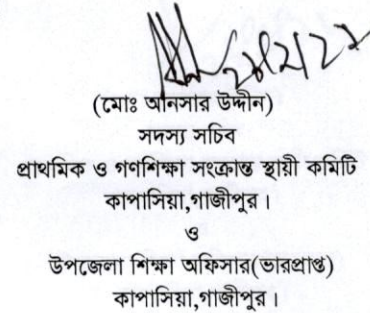 (মোঃ আনসার উদ্দীন)
সদস্য সচিব
প্রাথমিক ও গণশিক্ষা সংক্রান্ত স্থায়ী কমিটি
কাপাসিয়া,গাজীপুর।
ও
উপজেলা শিক্ষা অফিসার(ভারপ্রাপ্ত)
কাপাসিয়া,গাজীপুর।